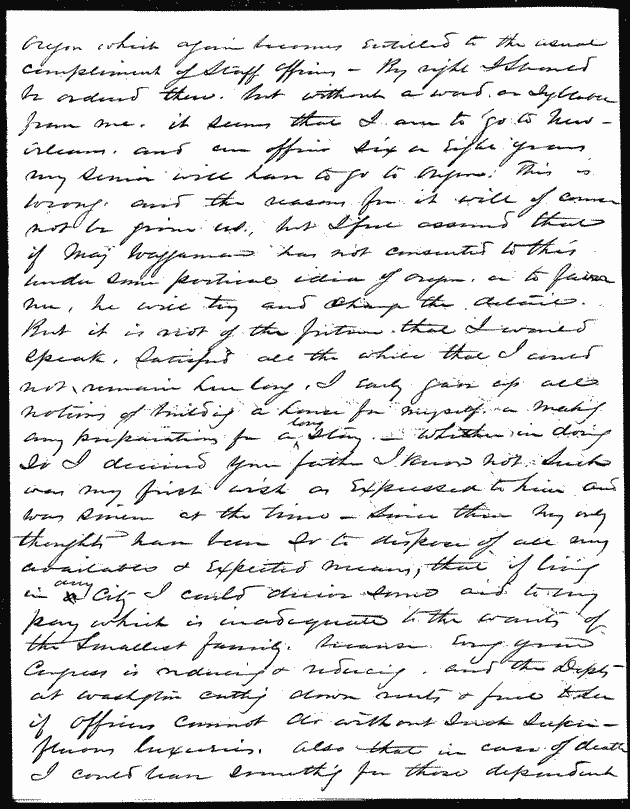 Oregon which again becomes entitled to the usual
compliment of Staff officers - By right I should
be ordered there. but without a word or Syllable
from me. it seems that I am to go to New-
Orleans. and an officer six or Eight years
my senior will have to go to Oregon. This is
wrong. and the reasons for it will of course
not be given us., but I feel assured that
if Maj Waggaman has not consented to this
under some poetical idea of Oregon. or to favor
me, he will try and change the detail.
But it is not of the future that I would
speak. Satisfied all the while that I could
not remain here long. I early gave up all
notions of building a house for myself or making
any preparations for a long Stay. - Whether in doing
So I deceived your father I know not. Such
was my first wish as Expressed to him and
was sincere at the time - Since then my only
thoughts have been So to dispose of all my
available & Expected means, that if living
in any City I could derive some aid to my
pay which is inadequate to the wants of
the Smallest family. because Every year
Congress is reducing & reducing. and the Depts
at Washgton cutting down rents & fuel to see
if officers cannot do without Such Super-
fluous luxuries. Also that in case of death
I could leave Something for those dependent